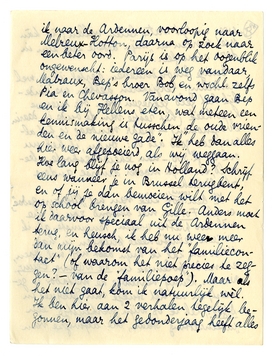 ik naar de Ardennen, voorlopig naar
Melreux-Hotton, daarna op zoek naar
een beter oord. Parijs is op het ogenblik
ongewenscht: iedereen is weg vandaar,
Malraux, Bep's broer Bob, en wacht zelfs
Pia en Chevasson. Vanavond gaan Bep
en ik bij Hellens eten, wat meteen een
kennismaking is tusschen de oude vrien-
den en de nieuwe gade. Ik heb van alles
hier weer afgespoeld als wij weggaan.
Hoe lang blijf je nog in Holland? Schrijf
eens wanneer je in Brussel terugbent,
en of jij je dan bemoeien wilt met het
op school brengen van Gille. Anders moet
ik daarvoor speciaal uit de Ardennen
terug, en heusch, ik heb nu weer meer
dan mijn bekomst van het familiecon-
tact (of waarom het niet precies te zeg-
gen? — van de familiesoep). Maar als
het niet gaat kom ik natuurlijk wèl.
Ik ben hier aan 2 verhalen tegelijk be-
gonnen, maar het gedonderjaag heeft alles